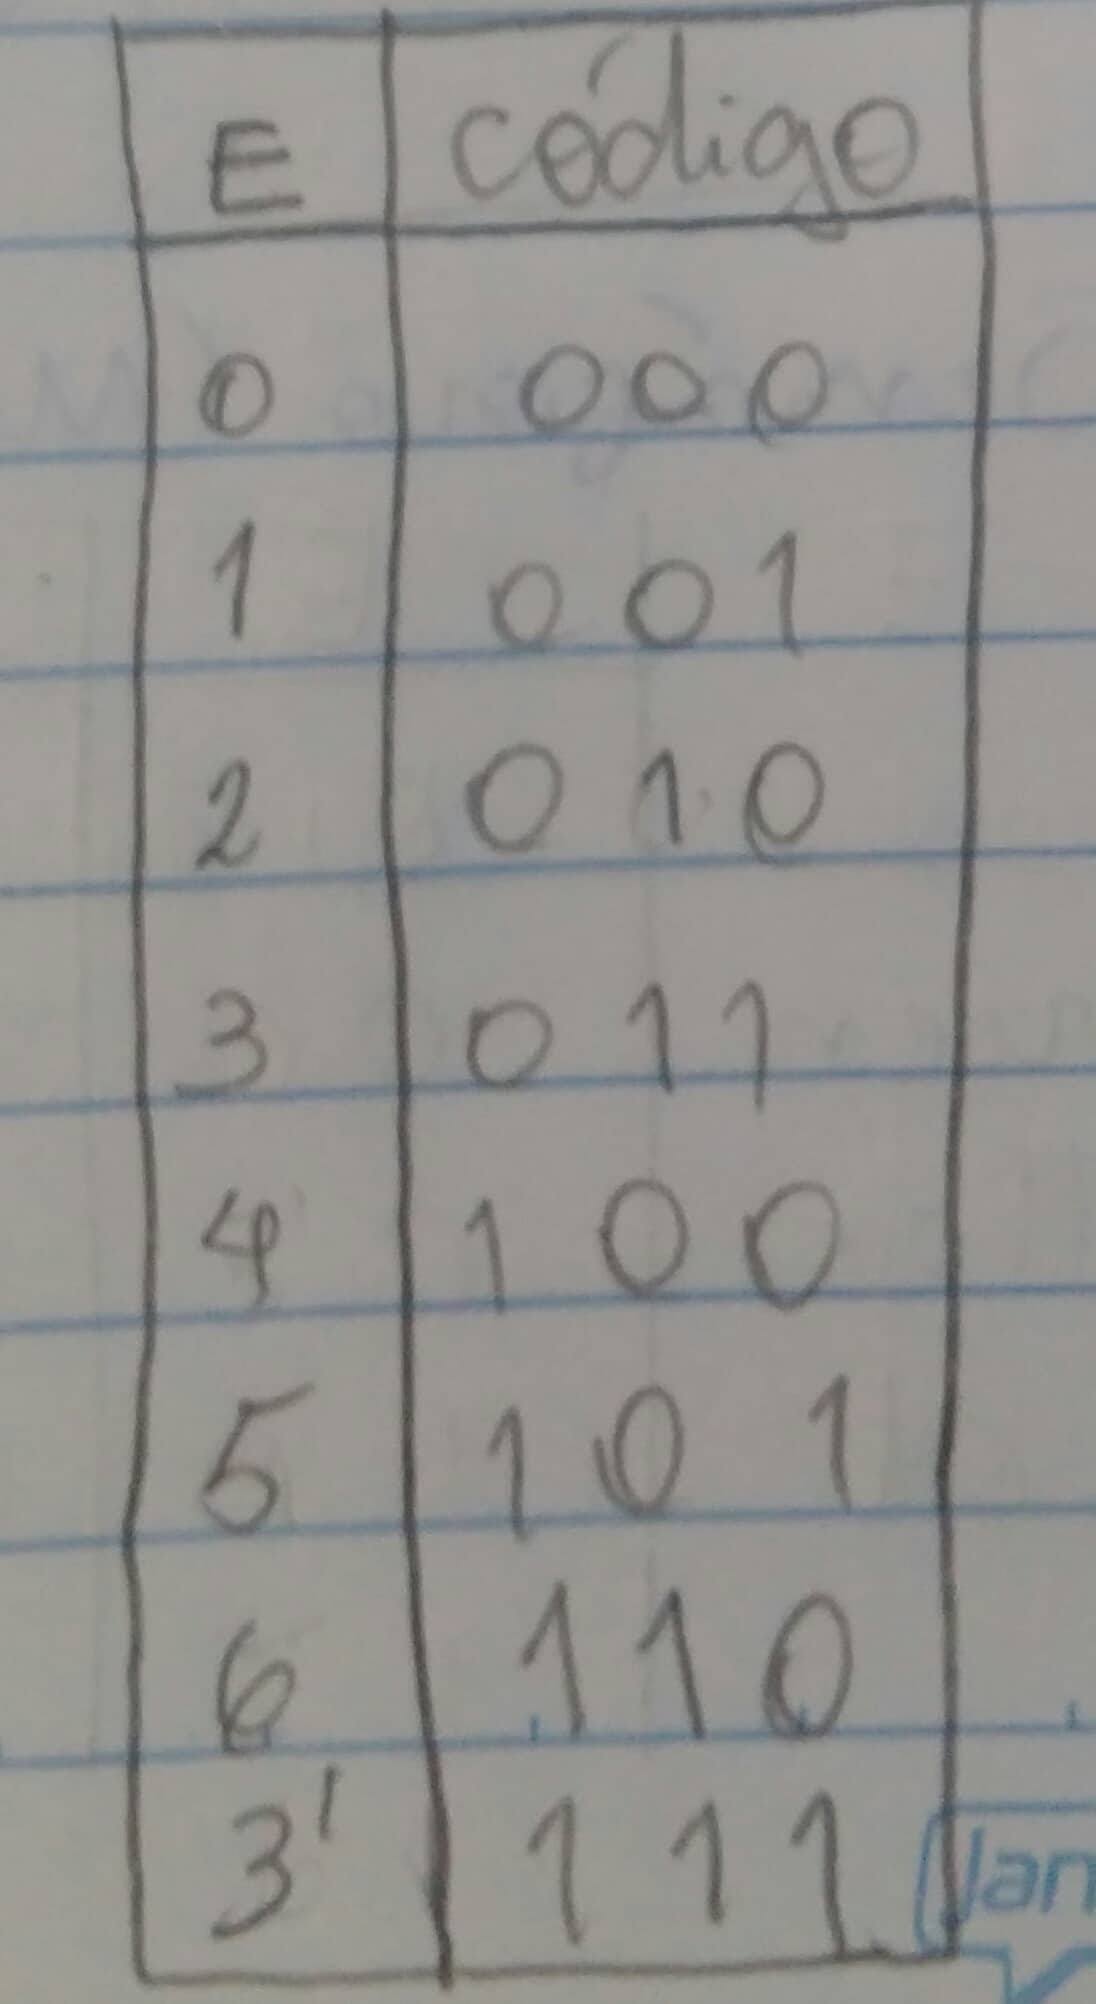 E código
0 000
1 001
2 010
3 011
4 100
5 101
6 110
3' 111
Jan